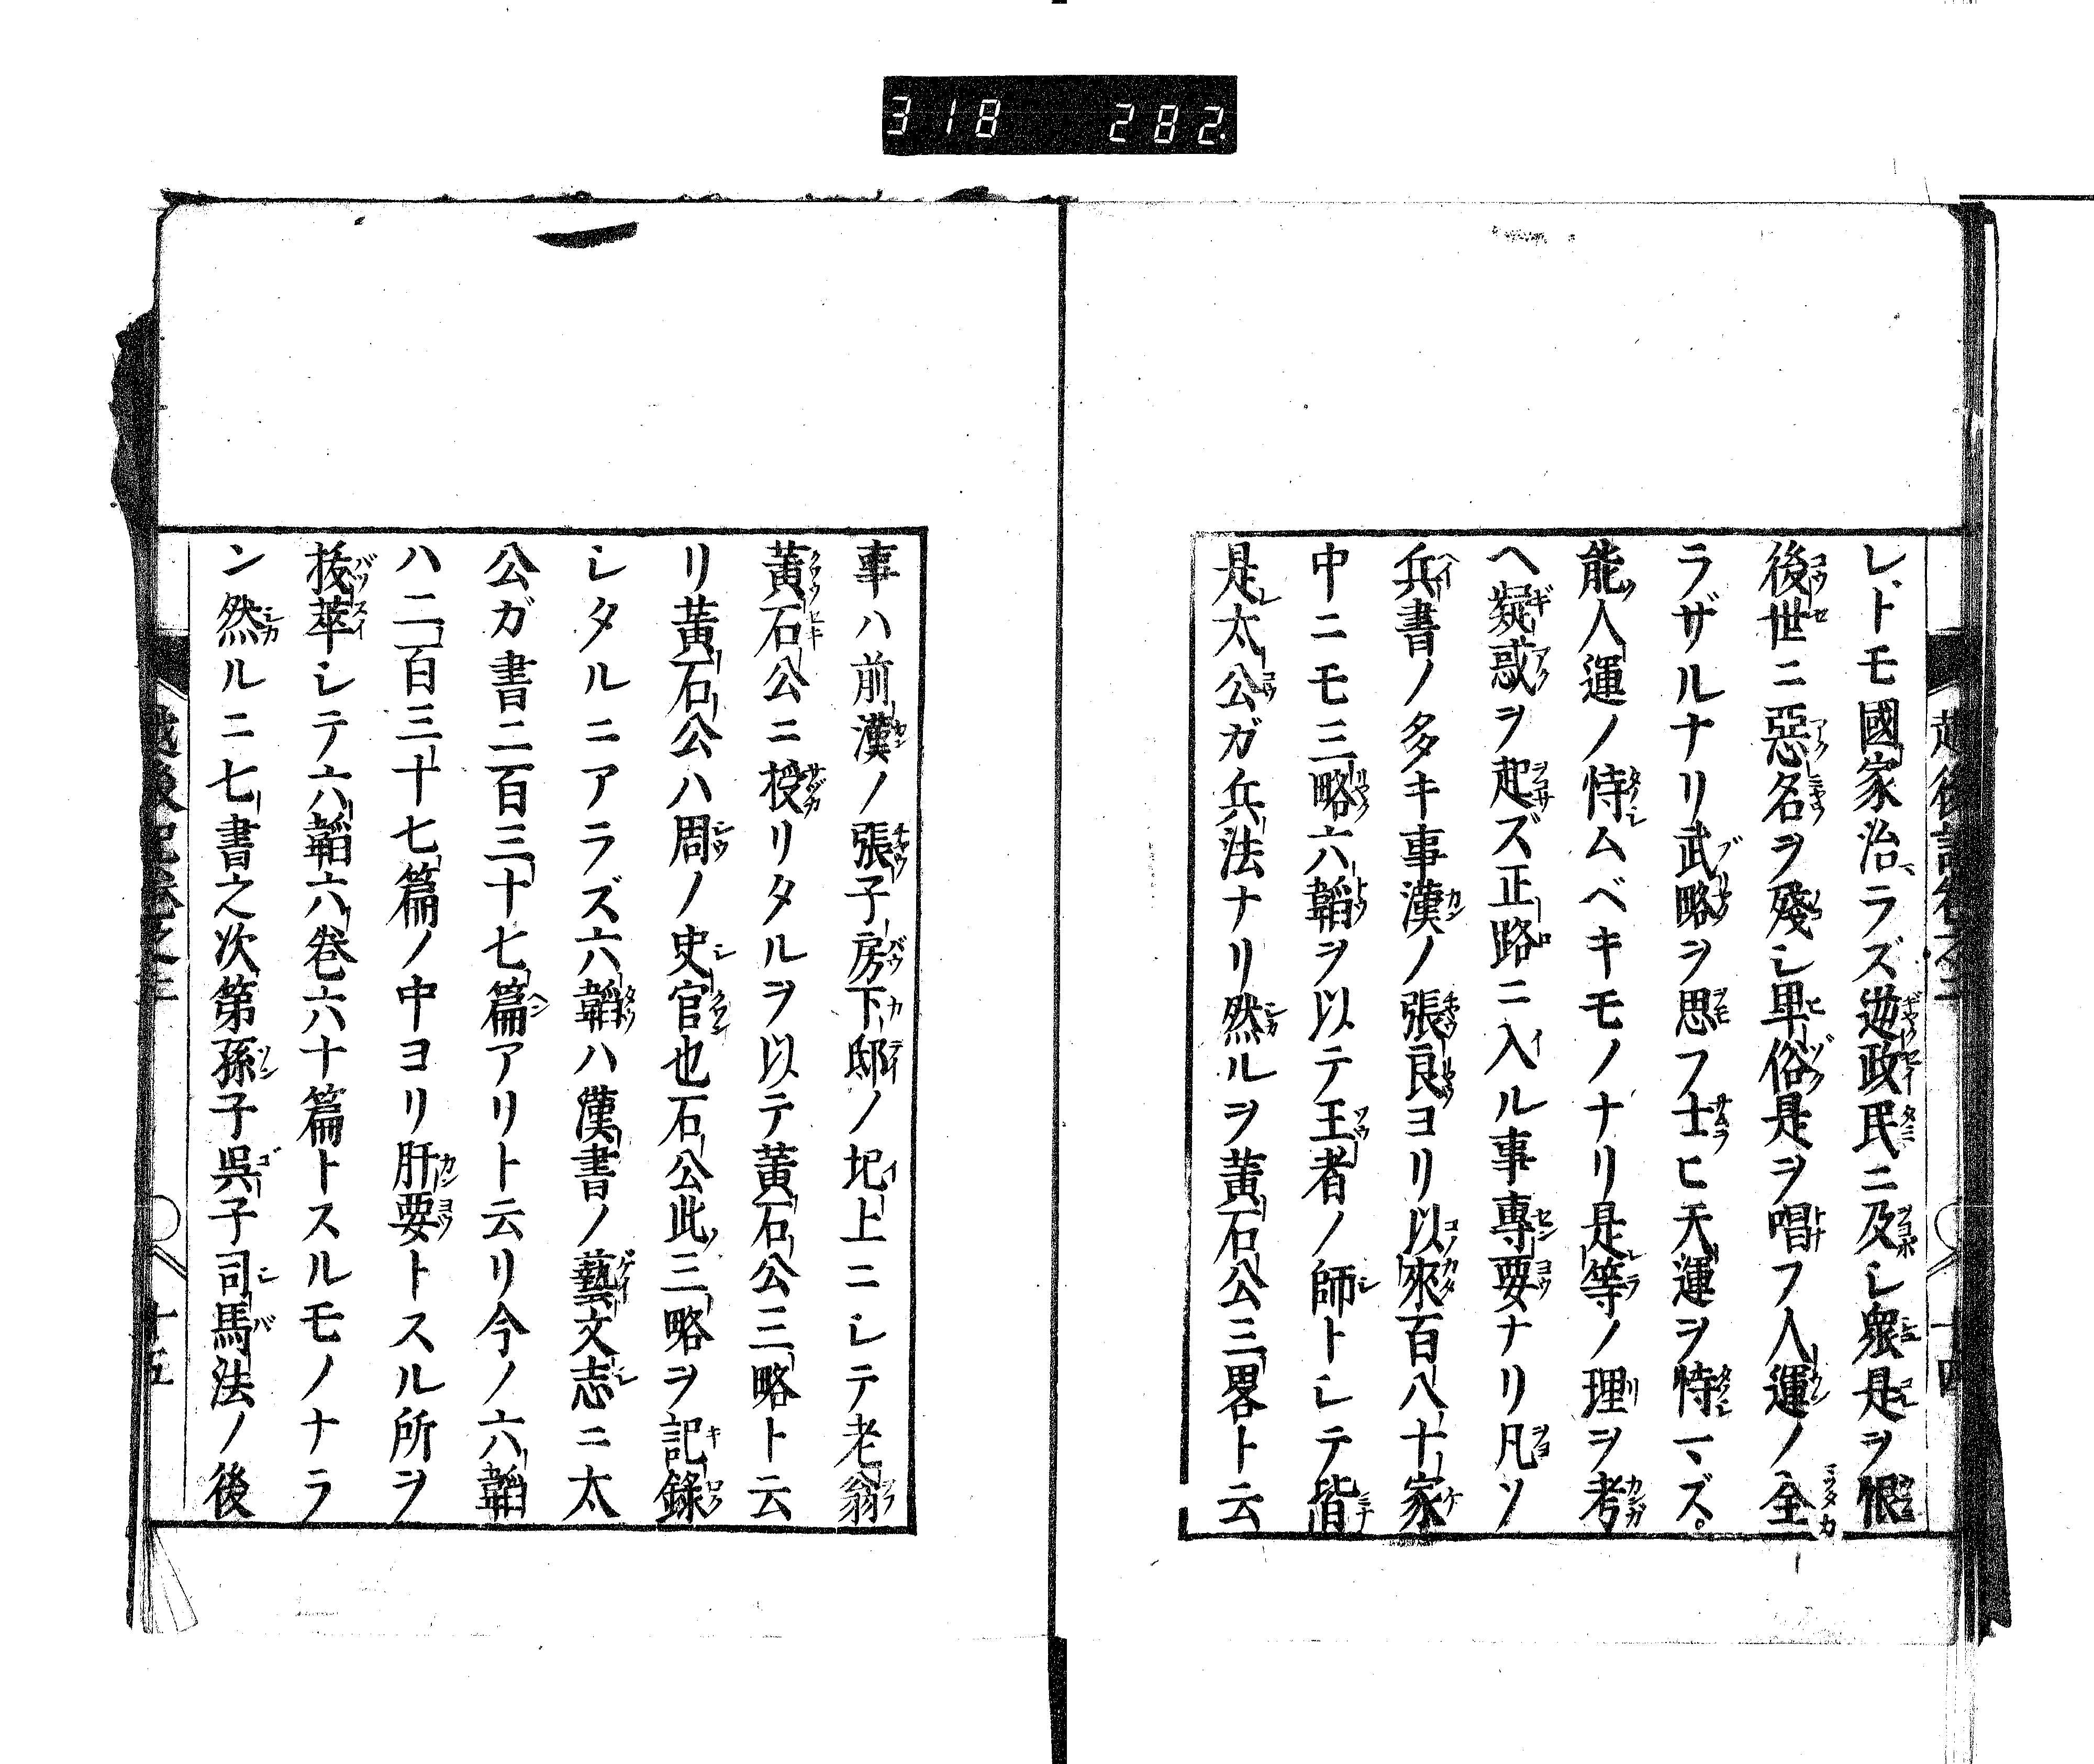 318 282.
レトモ國家治ラズ逆政民ニ及レ衆是ヲ恨
後世ニ惡名ヲ殘シ卑俗是ヲ唱フ人運ノ全
ラザルナリ武略ヲ思フ士ヒ天運ヲ恃マズ。
能人運ノ恃ムベキモノナリ是等ノ理ヲ考
ヘ疑惑ヲ起ズ正路ニ入ル事專要ナリ凡ソ
兵書ノ多キ事漢ノ張良ヨリ以來百八十家
中ニモ三略六韜ヲ以テ王者ノ師トシテ皆
是太公ガ兵法ナリ然ルヲ黃石公三畧ト云
事ハ前漢ノ張子房下邳ノ圯上ニシテ老翁
黃石公ニ授リタルヲ以テ黃石公三略ト云
リ黃石公ハ周ノ史官也石公此三略ヲ記錄
シタルニアラズ六韜ハ漢書ノ藝文志ニ太
公ガ書二百三十七篇アリト云リ今ノ六韜
ハ二百三十七篇ノ中ヨリ肝要トスル所ヲ
拔萃シテ六韜六巻六十篇トスルモノナラ
ン然ルニ七書之次第孫子呉子司馬法ノ後